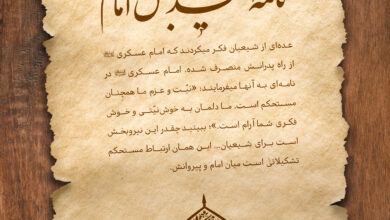 عده‌ای از شیعیان فکر میکردند که امام عسکری ﷺ
از راه پدرانش منصرف شده. امام عسکری ﷺ در
نامه‌ای به آنها میفرمایند: «نیّت و عزم ما همچنان
مستحکم است. ما دلمان به خوش‌نیّتی و خوش
فکری شما آرام است.»؛ ببینید چقدر این نیروبخش
است برای شیعیان... این همان ارتباط مستحکم
تشکیلاتی است میان امام و پیروانش.